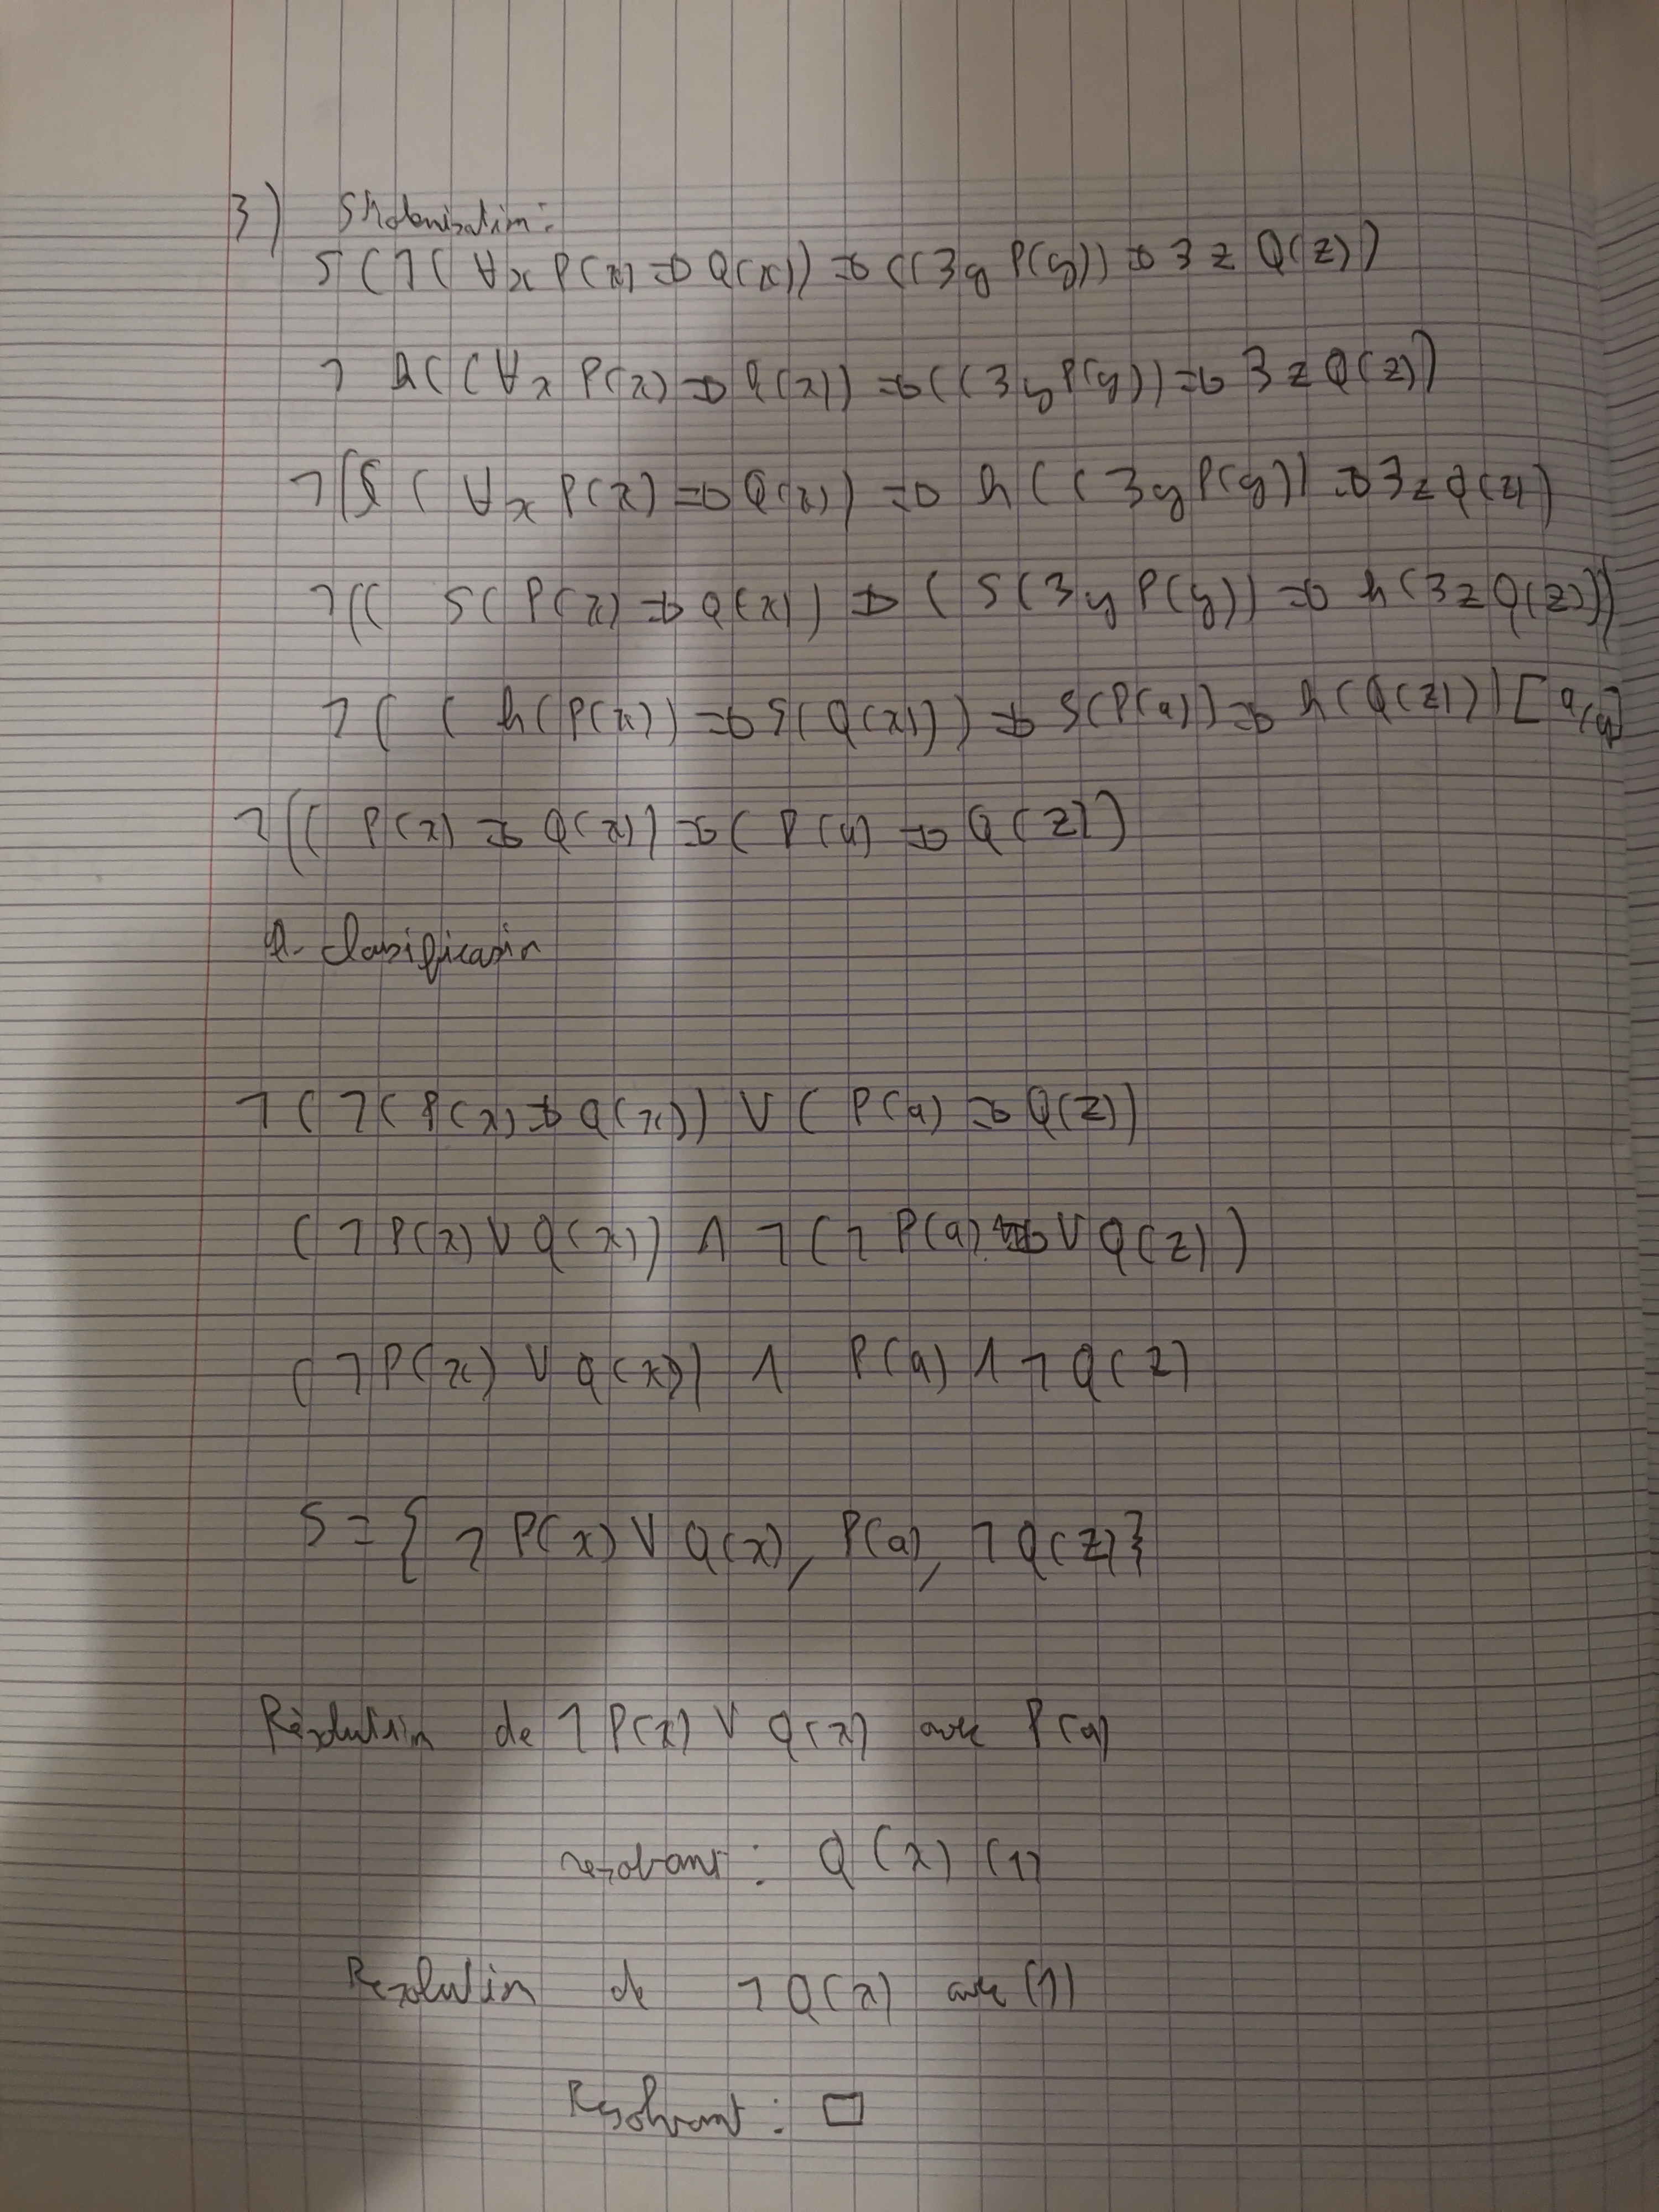 3) Skolemisation:
S(¬(∀x P(x) ⇒ Q(x)) ⇒ ((∃y P(y)) ⇒ ∃z Q(z))
¬ h((∀x P(x) ⇒ Q(x)) ⇒ ((∃y P(y)) ⇒ ∃z Q(z))
¬(S(∀x P(x) ⇒ Q(x)) ⇒ h((∃y P(y)) ⇒ ∃z Q(z))
¬(( S(P(x) ⇒ Q(x)) ⇒ (S(∃y P(y)) ⇒ h(∃z Q(z)))
¬( ( h(P(x)) ⇒ S(Q(x))) ⇒ S(P(a)) ⇒ h(Q(z))) [a/y]
¬(( P(x) ⇒ Q(x)) ⇒ ( P(a) ⇒ Q(z))
¬(¬(P(x) ⇒ Q(x)) ∨ (P(a) ⇒ Q(z))
(¬P(x) ∨ Q(x)) ∧ ¬(¬P(a) ∨ Q(z))
(¬P(x) ∨ Q(x)) ∧ P(a) ∧ ¬Q(z)
S = {¬P(x) ∨ Q(x), P(a), ¬Q(z)}
Résolution de ¬P(x) ∨ Q(x) avec P(a)
resolvant : Q(x) (1)
Resolution de ¬Q(x) avec (1)
Resolvant : □